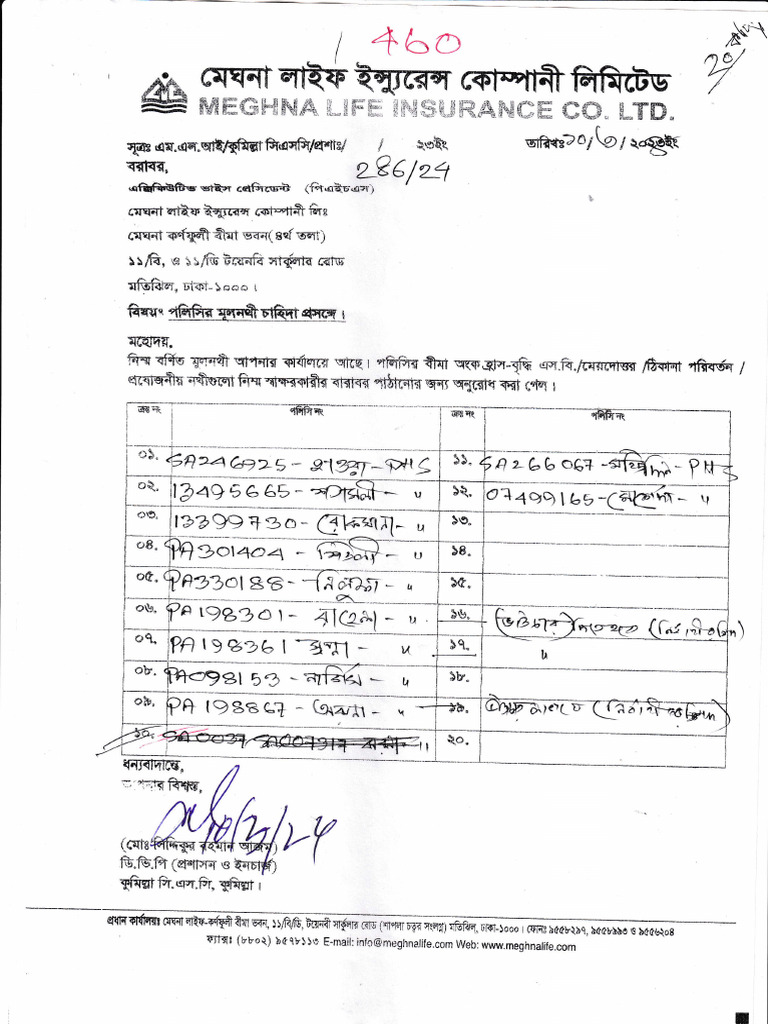 460
মেঘনা লাইফ ইন্স্যুরেন্স কোম্পানী লিমিটেড
MEGHNA LIFE INSURANCE CO. LTD.
সূত্রঃ এম.এল.আই/কুমিল্লা সিএসসি/প্রশাঃ/ / ২৩ইং তারিখঃ ১০/৩/২০২৪ইং
বরাবর, 286/24
এক্সিকিউটিভ ভাইস প্রেসিডেন্ট (পিএইচএস)
মেঘনা লাইফ ইন্স্যুরেন্স কোম্পানী লিঃ
মেঘনা কর্ণফুলী বীমা ভবন(৪র্থ তলা)
১১/বি, ও ১১/ডি টয়েনবি সার্কুলার রোড
মতিঝিল, ঢাকা-১০০০।
বিষয়ঃ পলিসির মূলনথী চাহিদা প্রসঙ্গে।
মহোদয়,
নিম্ন বর্ণিত মূলনথী আপনার কার্যালয়ে আছে। পলিসির বীমা অংক হ্রাস-বৃদ্ধি এস.বি./মেয়াদোত্তর /ঠিকানা পরিবর্তন /
প্রযোজনীয় নথীগুলো নিম্ন স্বাক্ষরকারীর বারাবর পাঠানোর জন্য অনুরোধ করা গেল।
ক্রম নং পলিসি নং ক্রম নং পলিসি নং
০১. SA246925- - PHS ১১. SA266067- - PHS
০২. 13495665- - " ১২. 07499165- - "
০৩. 13399730- রোকসানা- " ১৩.
০৪. PA301404- শিউলী - " ১৪.
০৫. PA330188- - " ১৫.
০৬. PA198301- রাহেলা- " ১৬.
০৭. PA198361 - " ১৭. "
০৮. PA098153- নার্গিস - " ১৮.
০৯. PA198867- - " ১৯.
১০. SA0037 SA007317 - " ২০.
ধন্যবাদান্তে,
আপনার বিশ্বস্ত,
10/3/24
(মোঃ সিদ্দিকুর রহমান আজম)
ডি.ভি.পি (প্রশাসন ও ইনচার্জ)
কুমিল্লা সি.এস.সি, কুমিল্লা।
প্রধান কার্যালয়ঃ মেঘনা লাইফ-কর্ণফুলী বীমা ভবন, ১১/বি/ডি, টয়েনবী সার্কুলার রোড (শাপলা চত্বর সংলগ্ন) মতিঝিল, ঢাকা-১০০০। ফোনঃ ৯৫৫৮২৯৭, ৯৫৫৮৯৯৩ ও ৯৫৫৬২০৪
ফ্যাক্সঃ (৮৮০২) ৯৫৭৮১১৩ E-mail: info@meghnalife.com Web: www.meghnalife.com